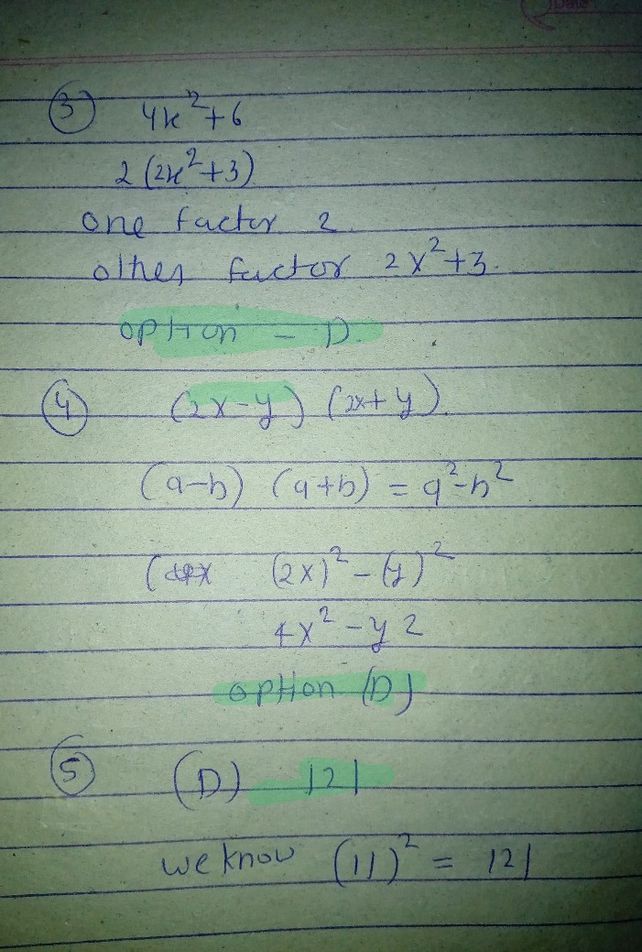 ③ 4x²+6
2 (2x²+3)
one factor 2
other factor 2x²+3.
option - D.
④ (2x-y) (2x+y).
(a-b) (a+b) = a²-b²
( (2x)² - (y)²
4x² - y 2
option (D)
⑤ (D) 121
we know (11)² = 121